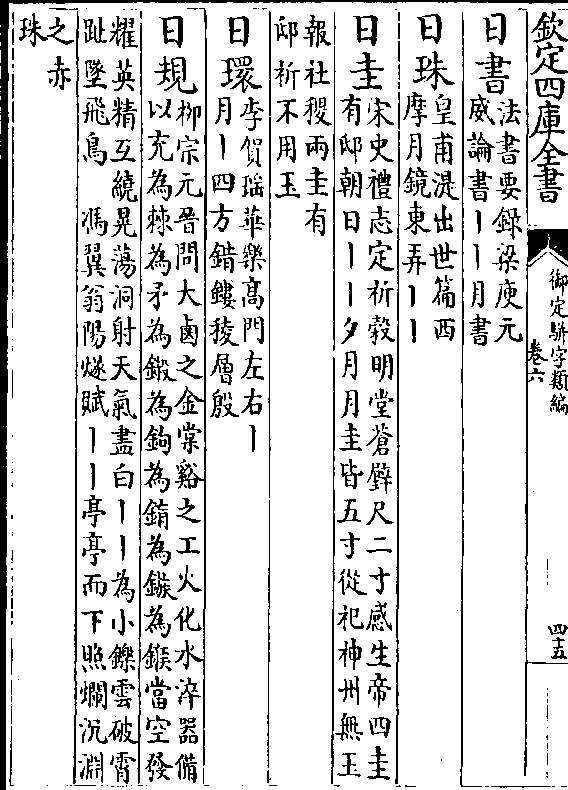 欽定四庫全書
御定駢字類編
卷六
四十五
日書
法書要録梁庾元
威論書丨丨月書
日珠
皇甫湜出世篇西
摩月鏡東弄丨丨
日圭
宋史禮志定祈穀明堂蒼璧尺二寸感生帝四圭
有邸朝日丨丨夕月月圭皆五寸從祀神州無玉
報社稷兩圭有
邸祈不用玉
日環
李賀瑶華樂高門左右丨
月丨四方錯鏤稜層殷
日規
栁宗元晉問大鹵之金棠谿之工火化水淬器備
以充為棘為矛為鎩為鉤為鏑為鏃為鍭當空發
耀英精互繞晃蕩洞射天氣盡白丨丨為小鑠雲破霄
趾墜飛鳥 馮翼翁陽燧賦丨丨亭亭而下照爛沉淵
之赤
珠